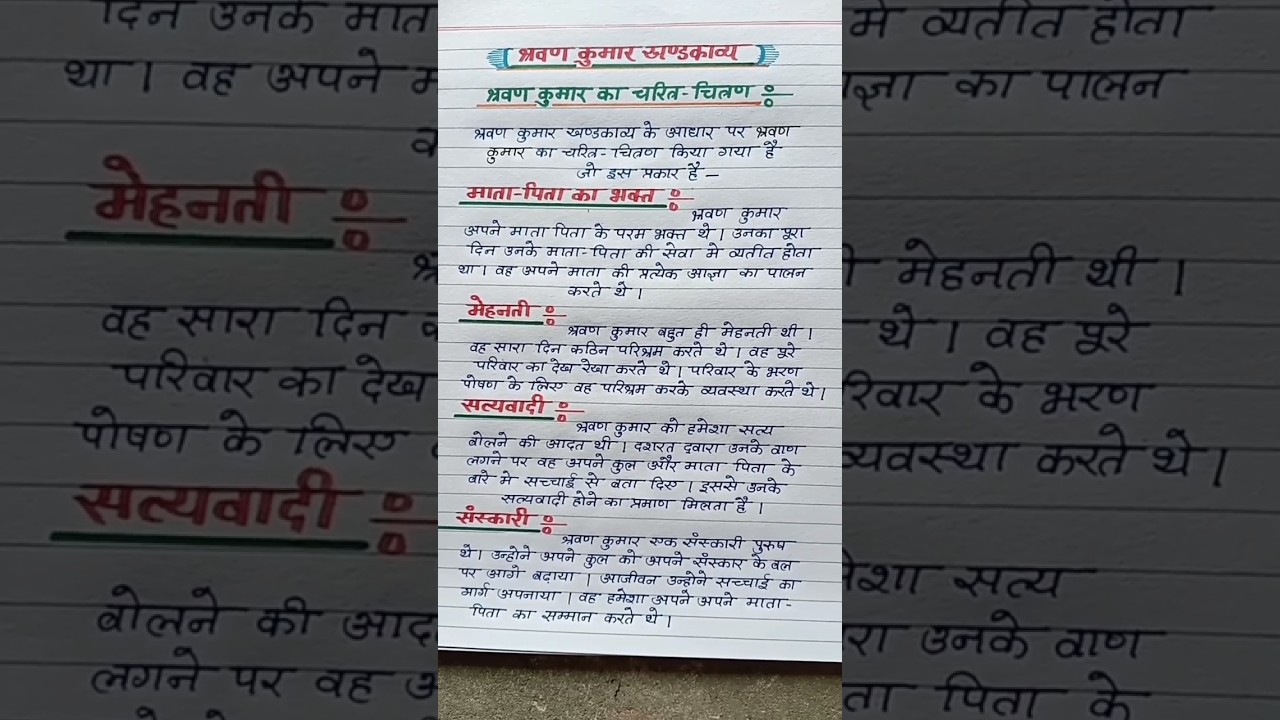 श्रवण कुमार खण्डकाव्य
श्रवण कुमार का चरित्र-चित्रण
श्रवण कुमार खण्डकाव्य के आधार पर श्रवण
कुमार का चरित्र-चित्रण किया गया है
जो इस प्रकार है –
माता-पिता का भक्त
श्रवण कुमार
अपने माता पिता के परम भक्त थे। उनका पूरा
दिन उनके माता-पिता की सेवा मे व्यतीत होता
था। वह अपने माता की प्रत्येक आज्ञा का पालन
करते थे।
मेहनती
श्रवण कुमार बहुत ही मेहनती थी।
वह सारा दिन कठिन परिश्रम करते थे। वह पूरे
परिवार का देख रेखा करते थे। परिवार के भरण
पोषण के लिए वह परिश्रम करके व्यवस्था करते थे।
सत्यवादी
श्रवण कुमार की हमेशा सत्य
बोलने की आदत थी। दशरत दवारा उनके वाण
लगने पर वह अपने कुल और माता पिता के
बारे मे सच्चाई से बता दिए। इससे उनके
सत्यवादी होने का प्रमाण मिलता है।
संस्कारी
श्रवण कुमार एक संस्कारी पुरुष
थे। उन्होने अपने कुल को अपने संस्कार के बल
पर आगे बढ़ाया। आजीवन उन्होने सच्चाई का
मार्ग अपनाया। वह हमेशा अपने अपने माता-
पिता का सम्मान करते थे।